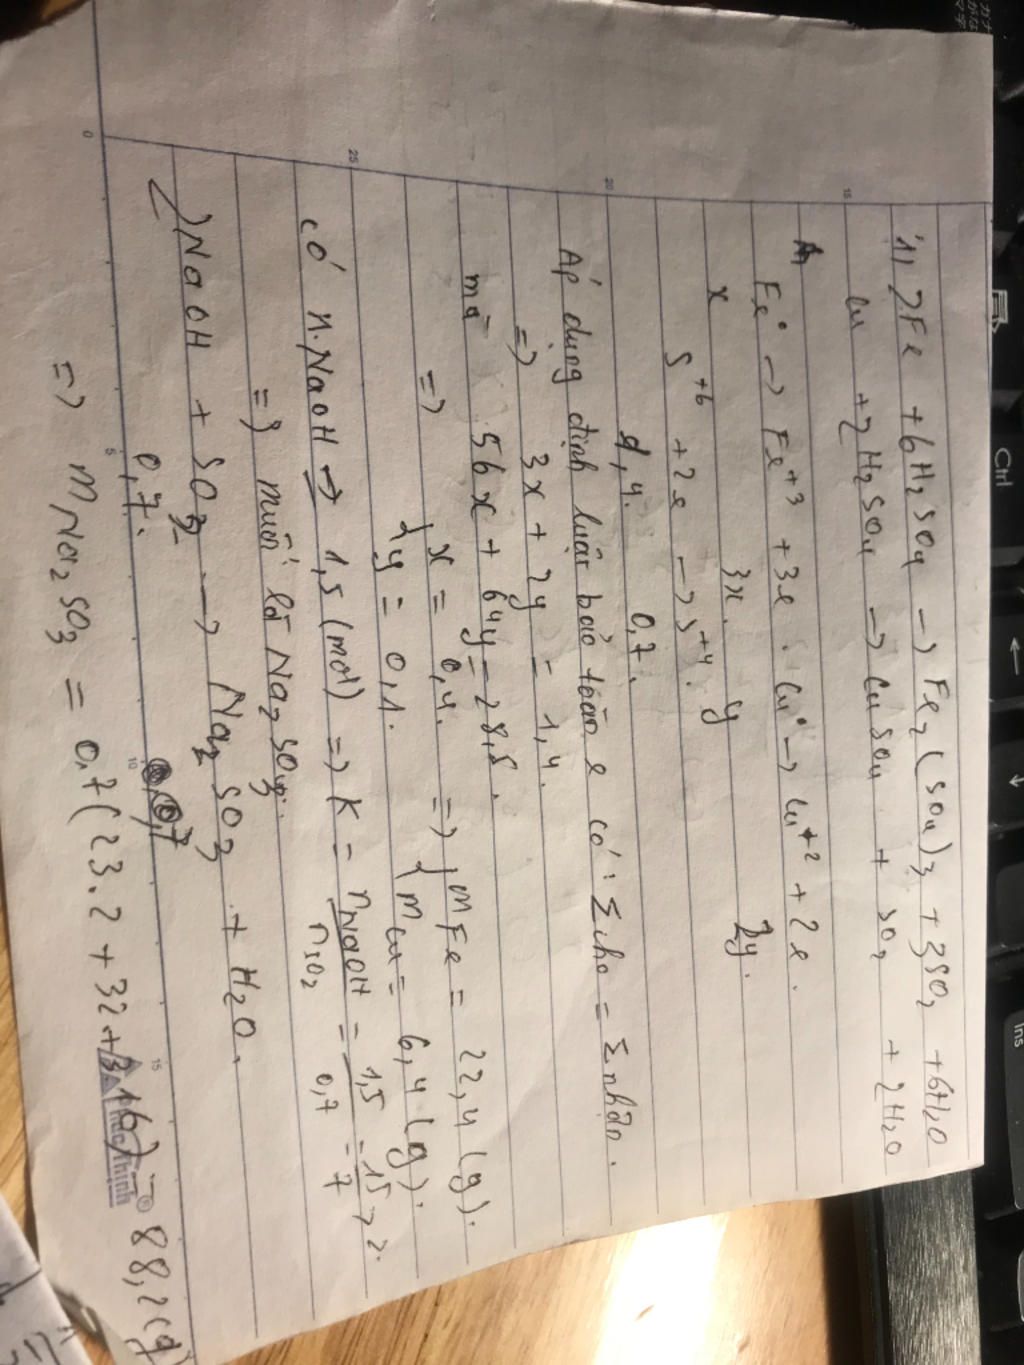 1, 2Fe + 6H2SO4 -> Fe2(SO4)3 + 3SO2 + 6H2O
Cu + 2H2SO4 -> CuSO4 + SO2 + 2H2O
Fe° -> Fe+3 + 3e . Cu° -> Cu+2 + 2e .
x 3x . y 2y .
S+6 + 2e -> S+4 .
1,4 . 0,7 .
Áp dụng định luật bảo toàn e có : Σcho = Σnhận .
=> 3x + 2y = 1,4 .
mà 56x + 64y = 28,8 .
=> { x = 0,4 . => { mFe = 22,4 (g) .
y = 0,1 . mCu = 6,4 (g) .
có n.NaOH -> 1,5 (mol) => K = nNaOH / nSO2 = 1,5 / 0,7 = 15 / 7 > 2 .
=> muối là Na2SO3 .
2NaOH + SO2 -> Na2SO3 + H2O .
0,7 . 0,7
=> mNa2SO3 = 0,7(23.2 + 32 + 3.16) = 88,2(g)
15
20
25
0
5
10
15
Ctrl
Ins